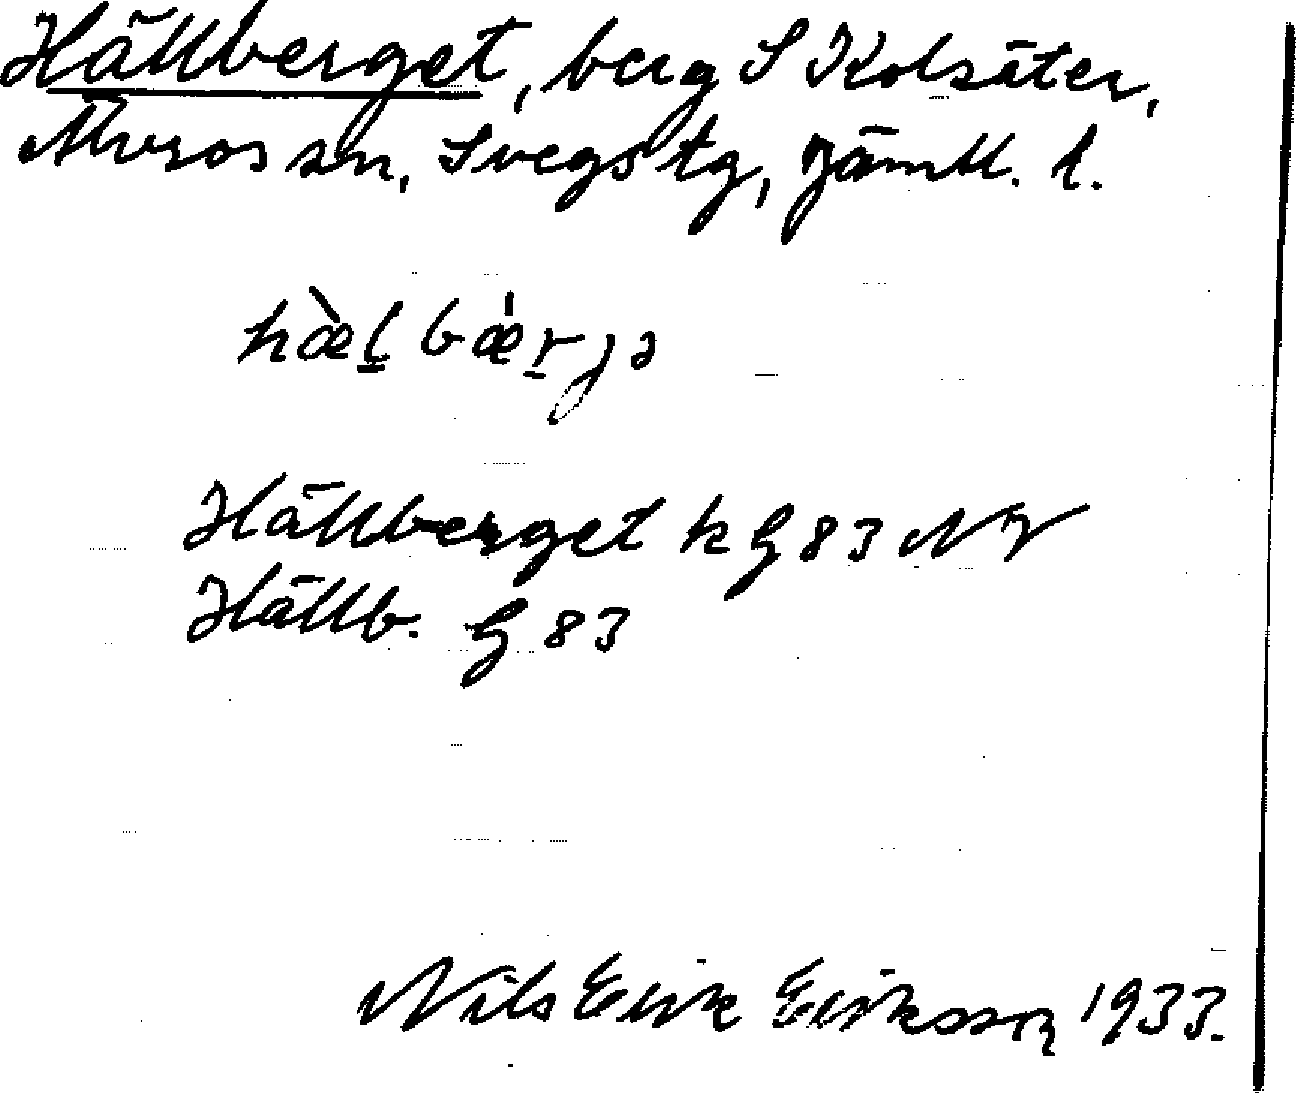 Hällberget, berg S Kolsäter,
Älvros sn, Svegs tg, Jämtl. l.
hæ̀l̲ bæ̀r̲jə
Hällberget k G 83 NV
Hällb. G 83
Nils Erik Eriksson 1933.